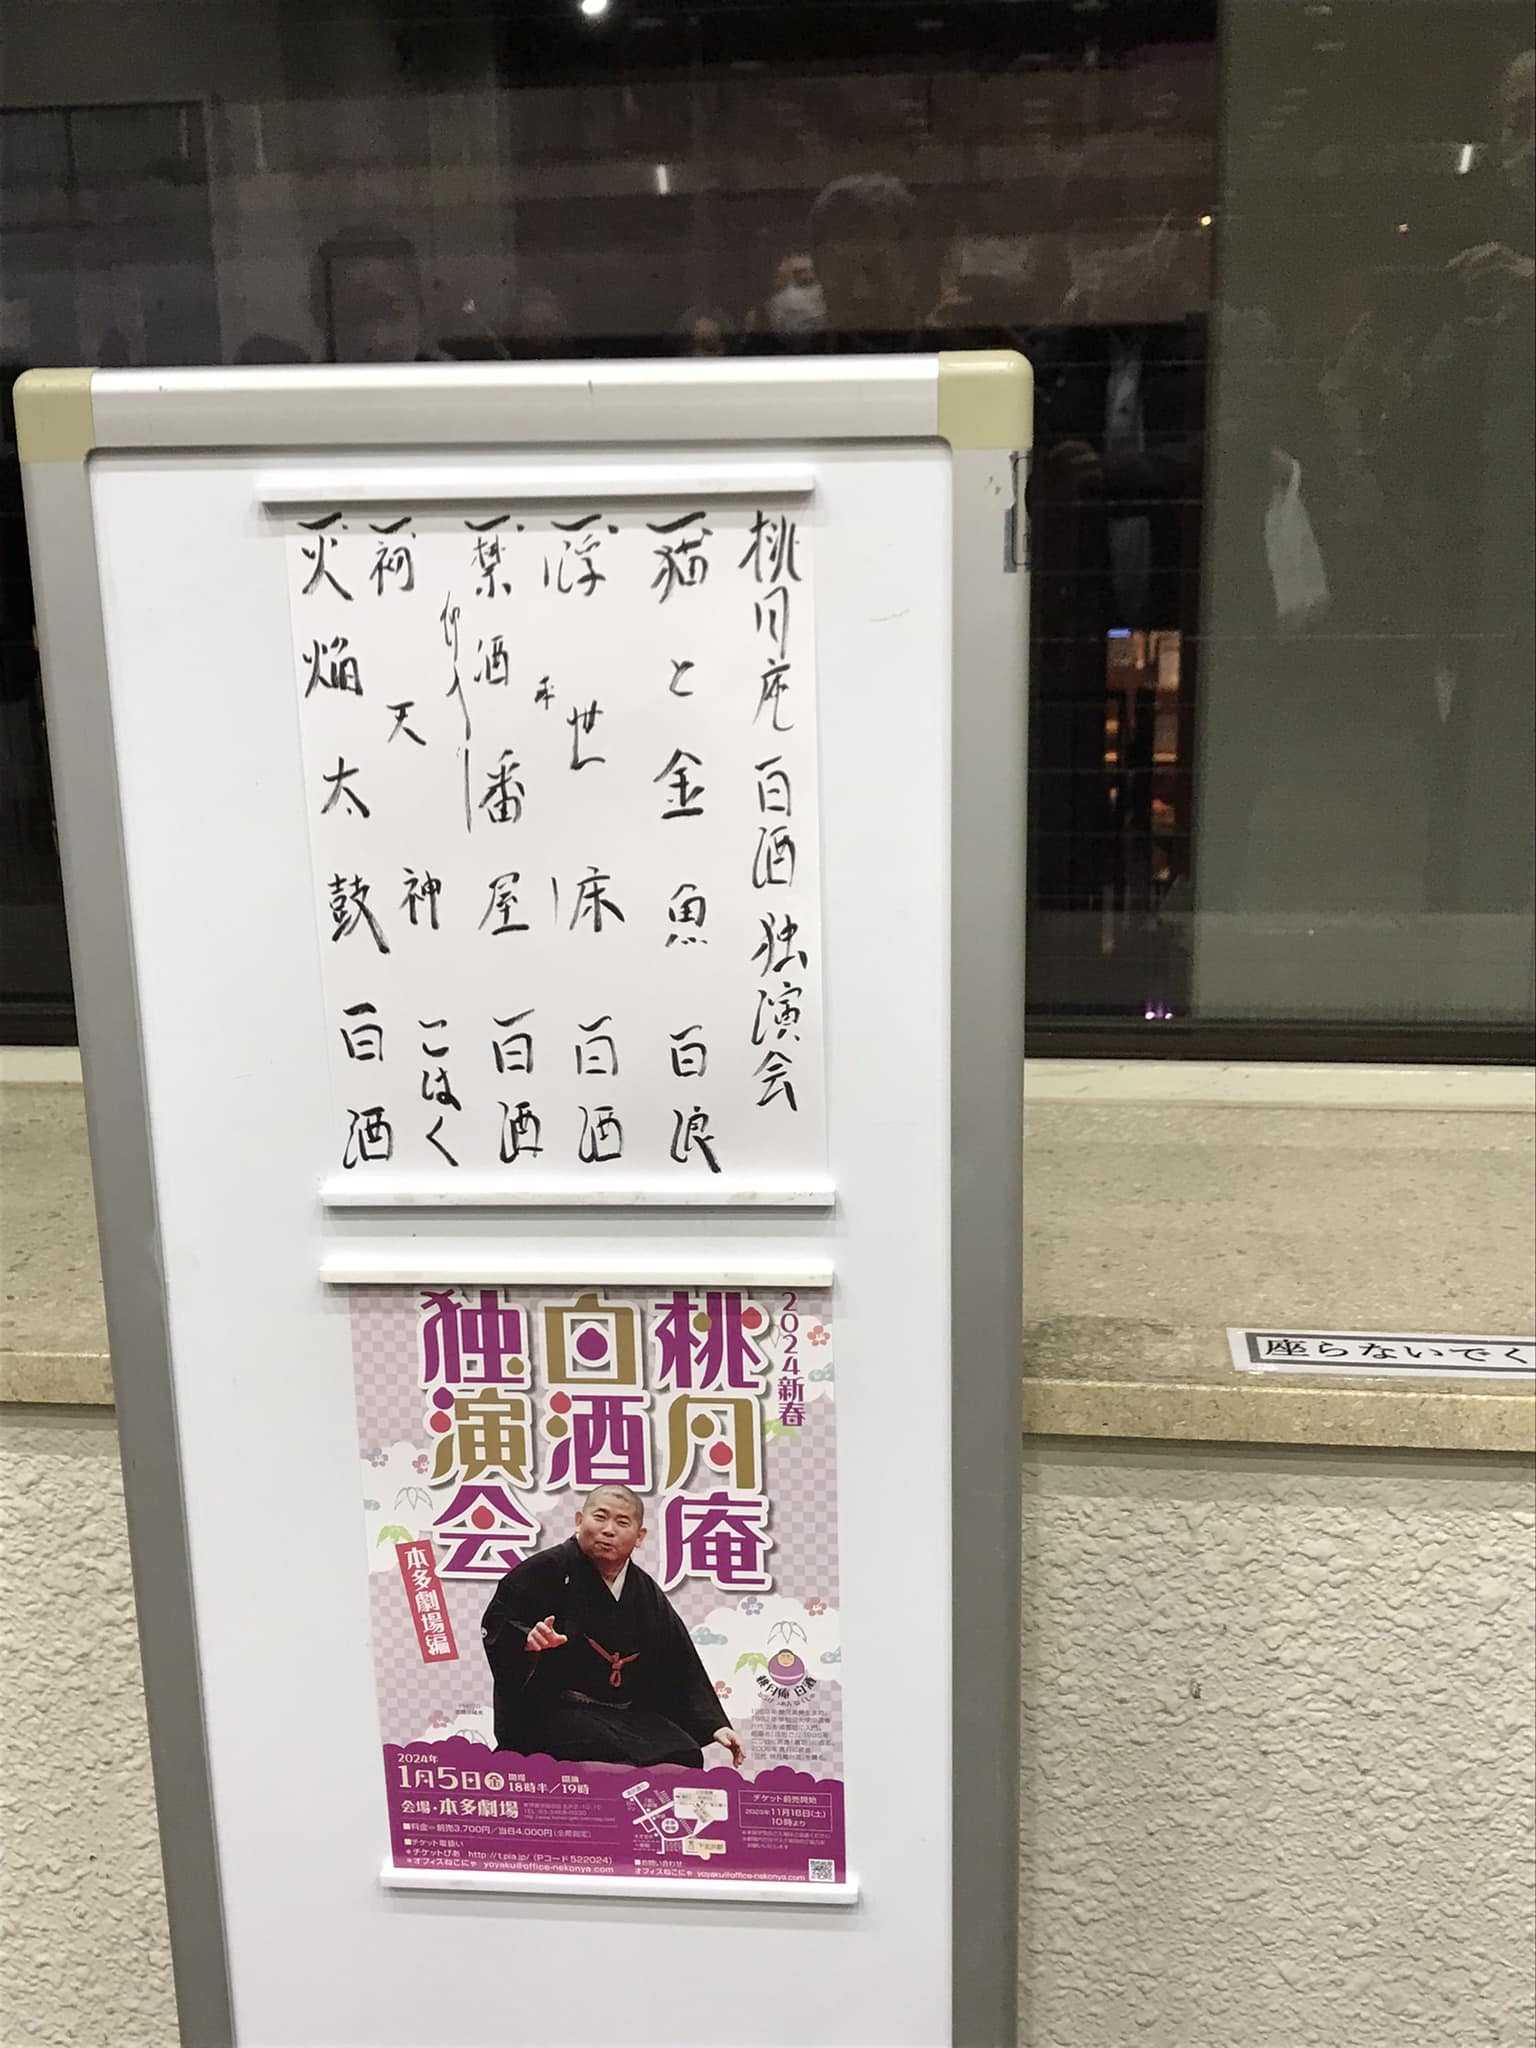 桃月庵白酒独演会
一、猫と金魚 白浪
一、浮世床 白酒
一、禁酒番屋 白酒
仲入り
一、初天神 こはく
一、火焔太鼓 白酒
2024新春
桃月庵
白酒
独演会
本多劇場編
桃月庵 白酒
2024年
1月5日(金) 開場18時半/開演19時
会場・本多劇場
■料金=前売3,700円/当日4,000円(全席指定)
■チケット取扱い
*チケットぴあ http://t.pia.jp/ (Pコード522024)
*オフィスねこにゃ yoyaku@office-nekonya.com
チケット前売開始
2023年11月18日(土)
10時より
■お問い合わせ
オフィスねこにゃ yoyaku@office-nekonya.com
座らないでく